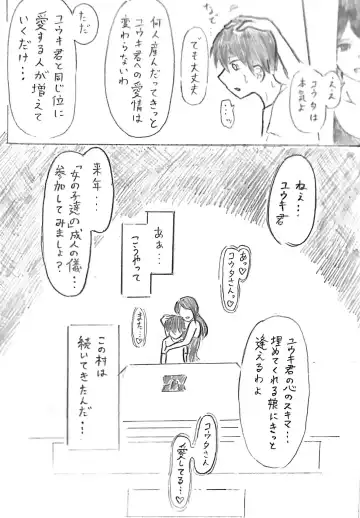 ええ
コウタは
本気よ
なで
でも大丈夫
・・・
何人産んだってきっと
ユウキ君への愛情は
変わらないわ
ただ
ユウキ君と同じ位に
愛する人が増えて
いくだけ・・・
ねぇ・・・
ユウキ君
あぁ・・・
こうやって
来年・・・
「女の子達の」成人の儀・・・
参加してみましょ？
あっ♡
コウタさん♡
また…♡
ユウキ君の心のスキマ・・・
埋めてくれる娘にきっと
逢えるわよ
この村は
続いてきたんだ・・・
コウタさん
愛してる…♡